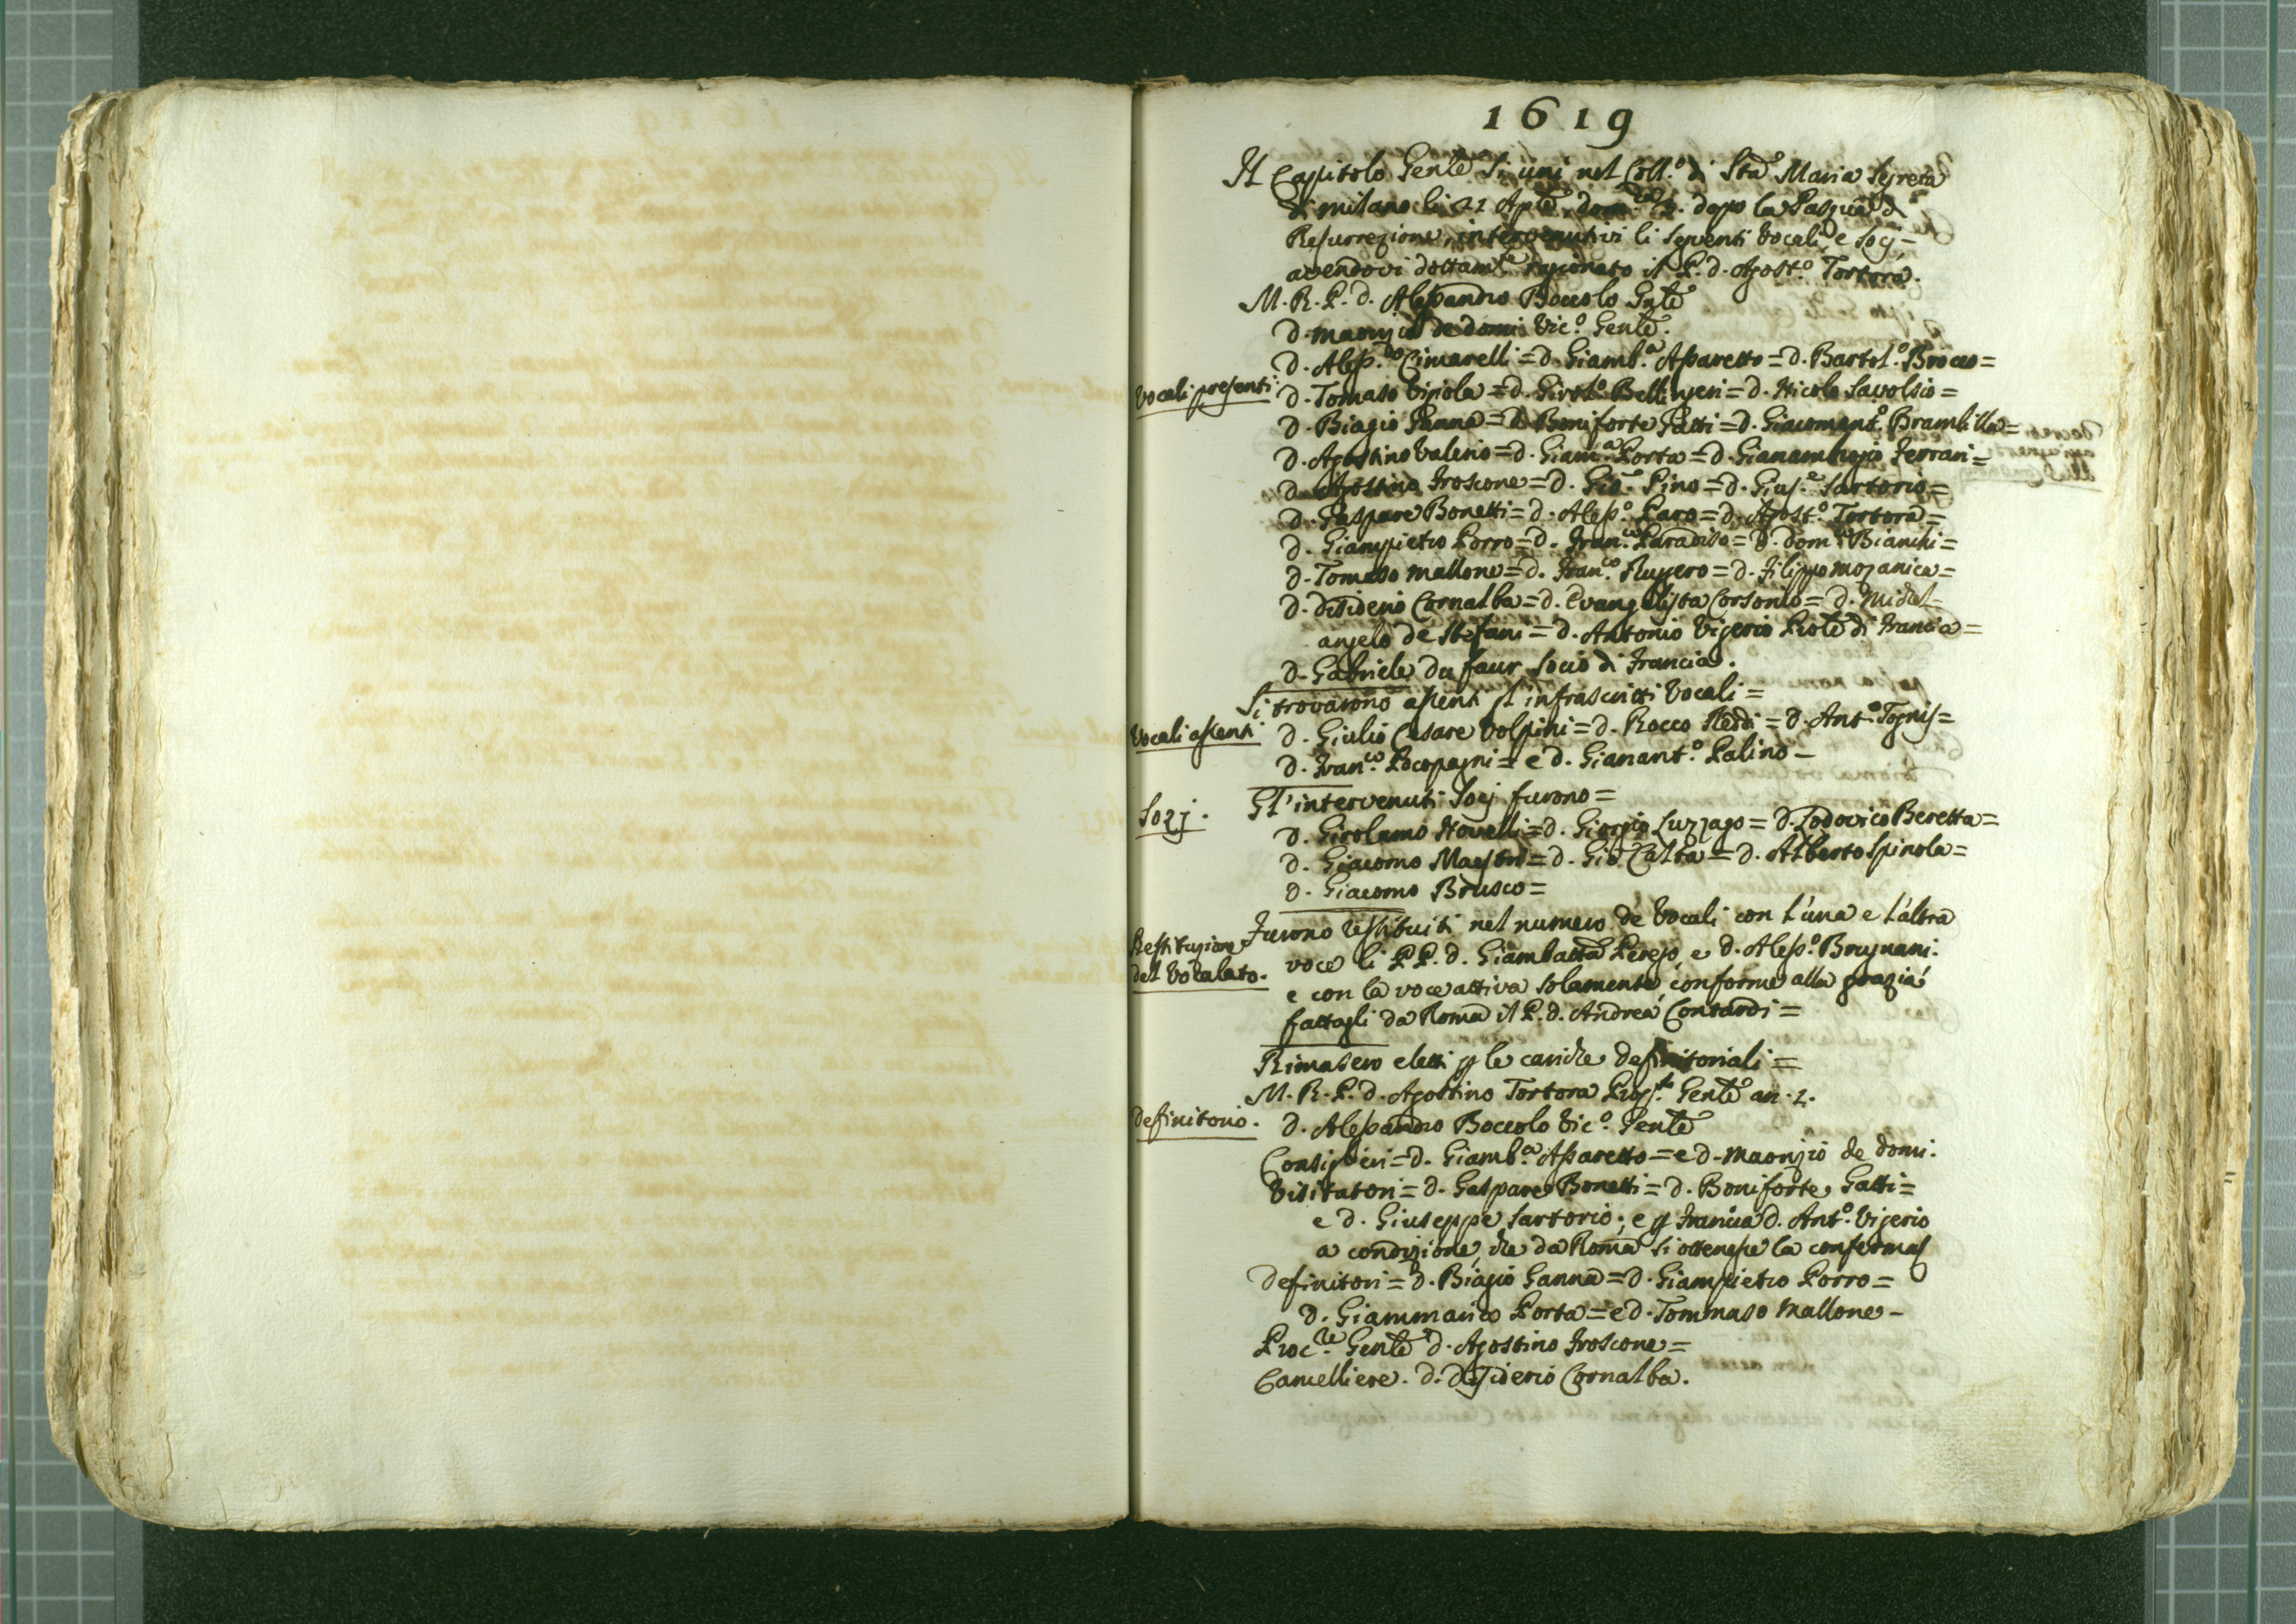 1619
Il Capitolo Genle si unì nel Coll.o di Sta Maria Segreta
di Milano li 21 Aple, dom.ca 2. dopo la Pasqua di
Resurrezione, intervenutivi li seguenti Vocali, e Socj-
avendovi dottam.te ragionato il P. d. Agost.o Tortora.
M. R. P. d. Alessandro Boccolo Gnle
d. Maurizio de domi Vic.o Genle.
d. Aless.dro Cimarelli = d. Giamb.a Assaretto = d. Bartol.o Brocco =
Vocali presenti. d. Tomaso Vipiola = d. Girol.o Bellingeri = d. Nicolo Savolsio =
d. Biagio Ganna = d. Boniforte Gatti = d. Giacomant.o Brambilla =
d. Agostino Valerio = d. Giam.a Porta = d. Gianambrogio Ferrari =
d. Agostino Froscone = d. Gio. Pino = d. Gius.e Sartorio =
d. Gaspare Bonetti = d. Aless.o Paro = d. Agost.o Tortora =
d. Giampietro Porro = d. Fran.co Paradiso = d. Dom.co Bianchi =
d. Tomaso Mallone = d. Fran.co Ruggero = d. Filippo Mozanica =
d. Dissiderio Cornalba = d. Evangelista Corsonio = d. Michel-
angelo de Stefani = d. Antonio Vigerio Piole di Francia =
d. Gabriele du faur Socio di Francia.
Si trovarono assenti gl' infrascritti Vocali =
Vocali assenti d. Giulio Cesare Volpini = d. Rocco Redi = d. Ant.o Tognis =
d. Fran.co Pocopagni = e d. Gianant.o Palino -
Sozj. Gl' intervenuti Socj furono =
d. Girolamo Novelli = d. Giorgio Luzzago = d. Lodovico Beretta =
d. Giacomo Maestri = d. Gio. Calta = d. Alberto Spinola =
d. Giacomo Brusco =
Restituzione Furono restituiti nel numero de Vocali con l'una e l'altra
del Vocalato. voce li PP. d. Giambatta Perego, e d. Aless.o Brugnani.
e con la voce attiva solamente, conforme alla grazia
fattagli da Roma il P. d. Andrea Contardi =
Rimasero eletti p le cariche definitoriali =
M. R. P. d. Agostino Tortora Prep.to Genle an. 2.
Definitorio. d. Alessandro Boccolo Vic.o Genle
Consiglieri = d. Giamb.a Assaretto = e d. Maorizio de domi.
Visitatori = d. Gaspare Bonetti = d. Boniforte Gatti =
e d. Giuseppe Sartorio; e p Francia d. Ant.o Vigerio
a condizione, che da Roma si ottenesse la conferma
Definitori = d. Biagio Ganna = d. Giampietro Porro =
d. Giammarco Porta = e d. Tommaso Mallone -
Proc.re Genle d. Agostino Froscone =
Cancelliere. d. Dissiderio Cornalba.